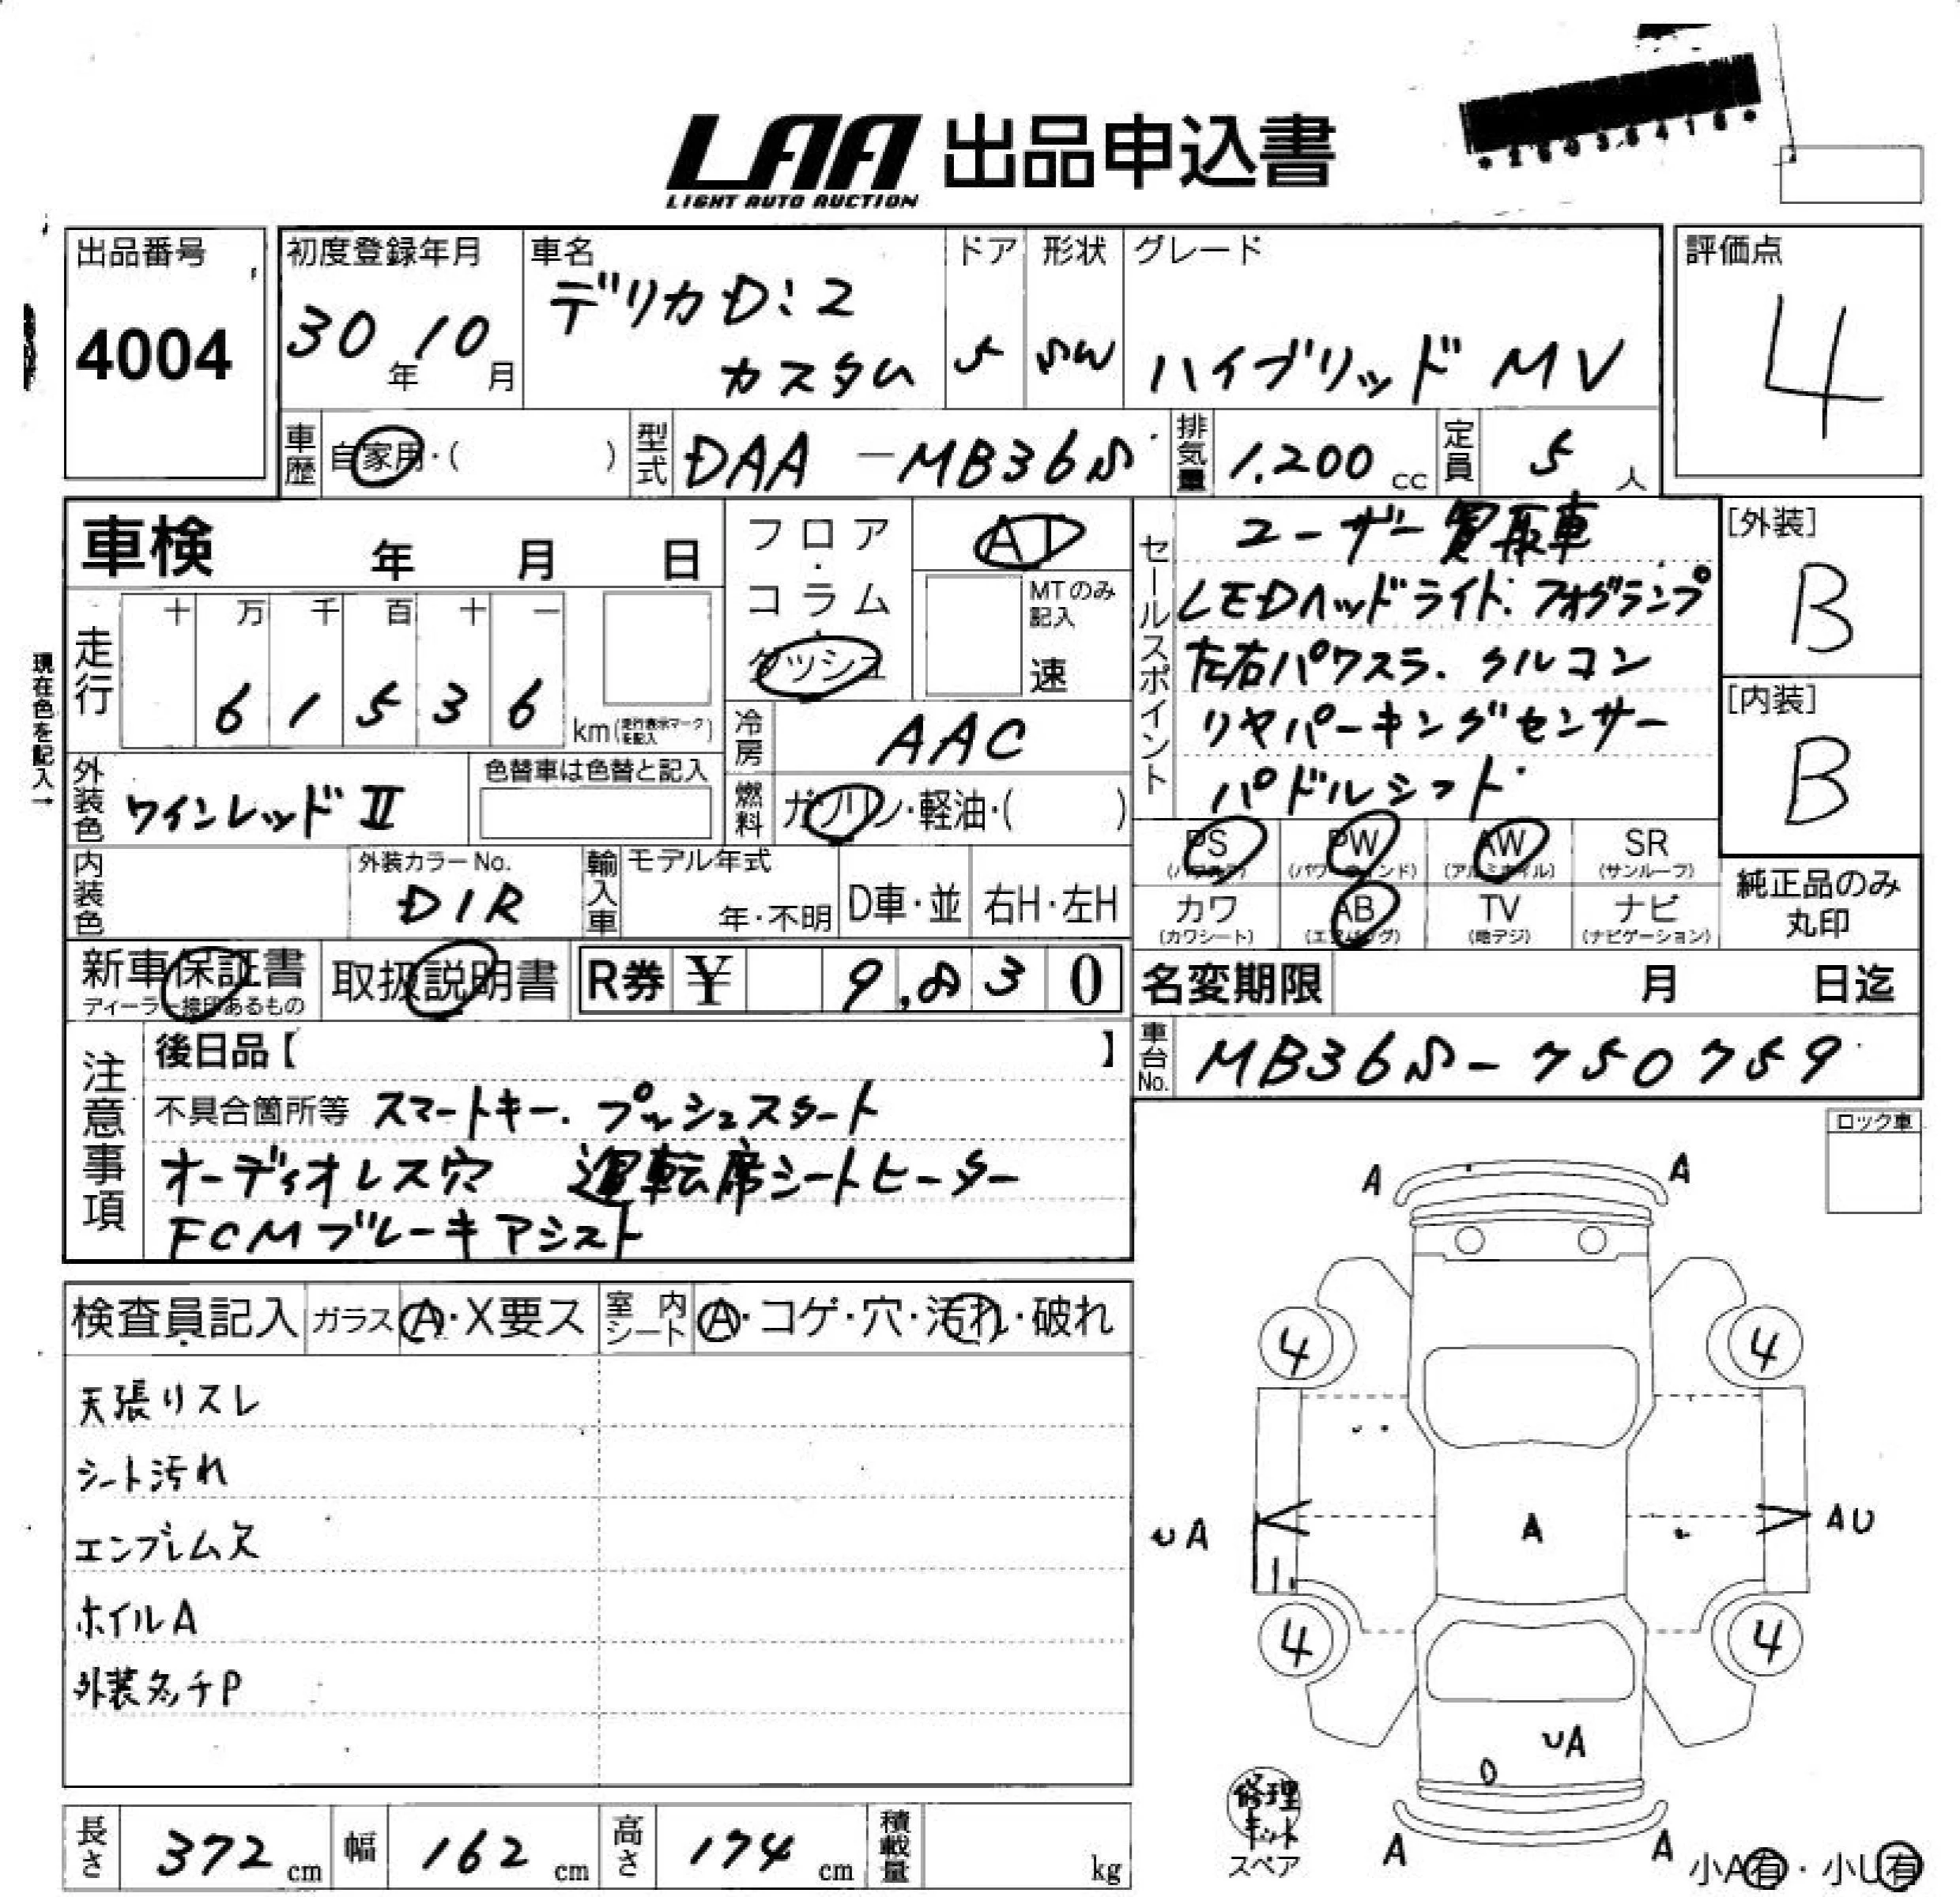 LAA 出品申込書
LIGHT AUTO AUCTION
出品番号
4004
初度登録年月
30年10月
車名
デリカD:2
カスタム
ドア
5
形状
SW
グレード
ハイブリッド MV
評価点
4
車歴 自家用・( )
型式 DAA-MB36S
排気量 1.200 cc
定員 5 人
車検 年 月 日
フロア・コラム・ダッシュ
AT
MTのみ記入
速
走行
十 万 千 百 十 一
6 1 5 3 6
km(走行表示マークを記入)
現在色を記入→
冷房 AAC
外装色 ワインレッドⅡ
色替車は色替と記入
燃料 ガソリン・軽油・( )
内装色
外装カラーNo.
D1R
輸入車
モデル年式
年・不明
D車・並
右H・左H
セールスポイント
ユーザー買取車
LEDヘッドライト.フォグランプ
左右パワスラ.クルコン
リヤパーキングセンサー
パドルシフト
[外装]
B
[内装]
B
PS PW AW SR
(パワステ) (パワーウインド) (アルミホイル) (サンルーフ)
カワ AB TV ナビ
(カワシート) (エアバッグ) (地デジ) (ナビゲーション)
純正品のみ
丸印
新車保証書
ディーラー捺印あるもの
取扱説明書
R券 ¥ 9,830
名変期限 月 日迄
車台No. MB36S-750759
注意事項
後日品【 】
不具合箇所等 スマートキー.プッシュスタート
オーディオレス穴 運転席シートヒーター
FCMブレーキアシスト
ロック車
検査員記入 ガラス A・X要ス 室内シート A・コゲ・穴・汚れ・破れ
天張りスレ
シート汚れ
エンブレム欠
ホイルA
外装多チP
A A
4 4
UA A AU
4 4
UA
A A
修理
キット
スペア
小A有・小U有
長さ 372 cm 幅 162 cm 高さ 174 cm 積載量 kg